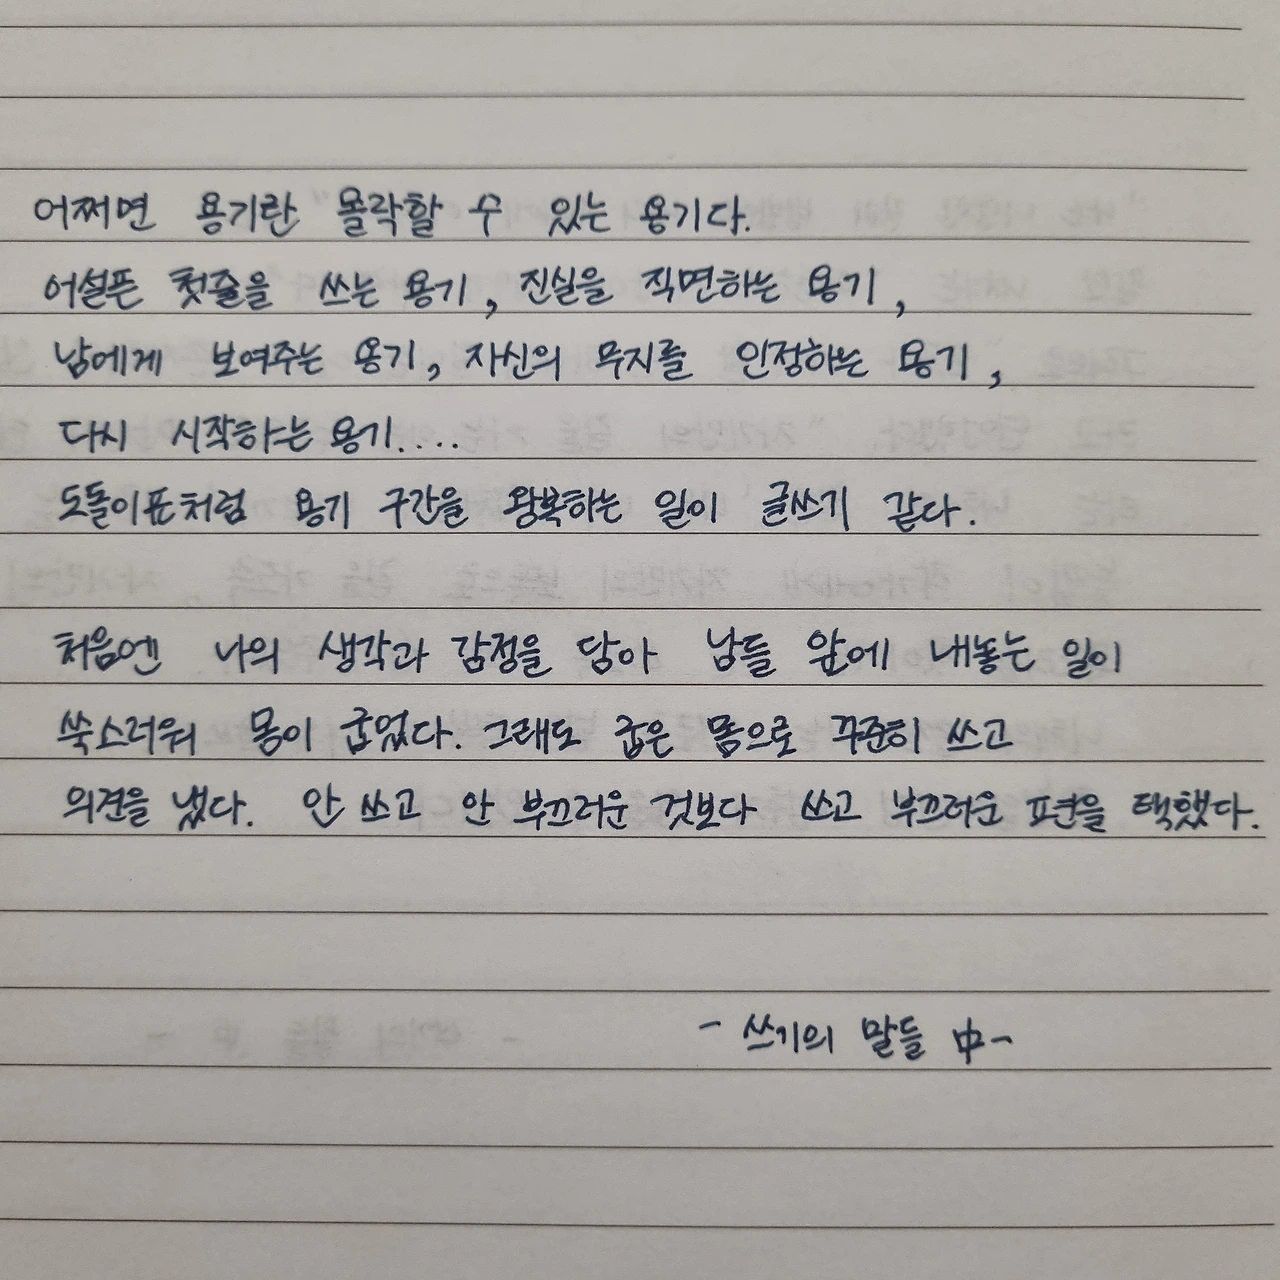 어쩌면 용기란 몰락할 수 있는 용기다.
어설픈 첫줄을 쓰는 용기, 진실을 직면하는 용기,
남에게 보여주는 용기, 자신의 무지를 인정하는 용기,
다시 시작하는 용기....
도돌이표처럼 용기 구간을 왕복하는 일이 글쓰기 같다.
처음엔 나의 생각과 감정을 담아 남들 앞에 내놓는 일이
쑥스러워 몸이 굽었다. 그래도 굽은 몸으로 꾸준히 쓰고
의견을 냈다. 안 쓰고 안 부끄러운 것보다 쓰고 부끄러운 편을 택했다.
- 쓰기의 말들 中 -